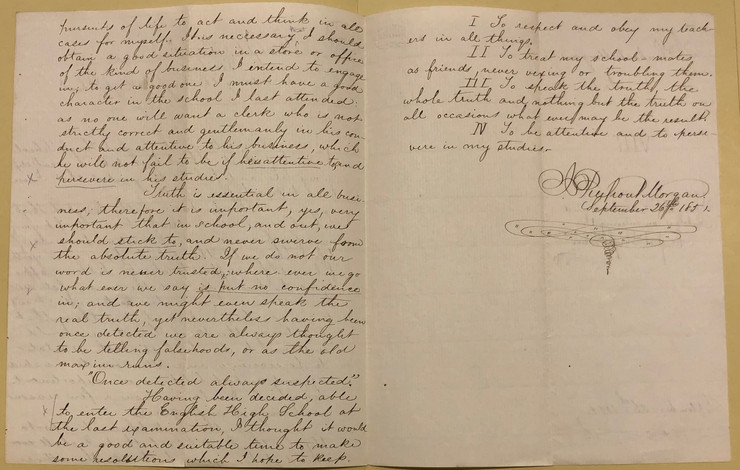 pursuits of life to act and think in all
cases for myself. It is necessary, I should
obtain a good situation in a store or office
of the kind of business I intend to engage
in; to get a good one I must have a good
character in the school I last attended
as no one will want a clerk who is not
strictly correct and gentlemanly in his con
duct and attentive to his business, which
he will not fail to be if he is attentive to, and
x persevere in his studies.
Truth is essential in all busi
ness; therefore it is important, yes, very
important that in school, and out, we
should stick to, and never swerve from
the absolute truth. If we do not our
word is never trusted, where ever we go
what ever we say is put no confidence
in; and we might even speak the
real truth, yet nevertheless having been
once detected we are always thought
to be telling falsehoods, or as the old
maxim runs.
"Once detected always suspected."
Having been decided, able
x to enter the English High School at
the last examination, I thought it would
be a good and suitable time to make
some resolutions which I hope to keep.
I To respect and obey my teach
ers in all things.
II To treat my school-mates
as friends, never vexing or troubling them.
III To speak the truth, the
whole truth and nothing but the truth on
all occasions what ever may be the result
IV To be attentive and to perse-
vere in my studies.
J Pierpont Morgan
September 26th 1851.